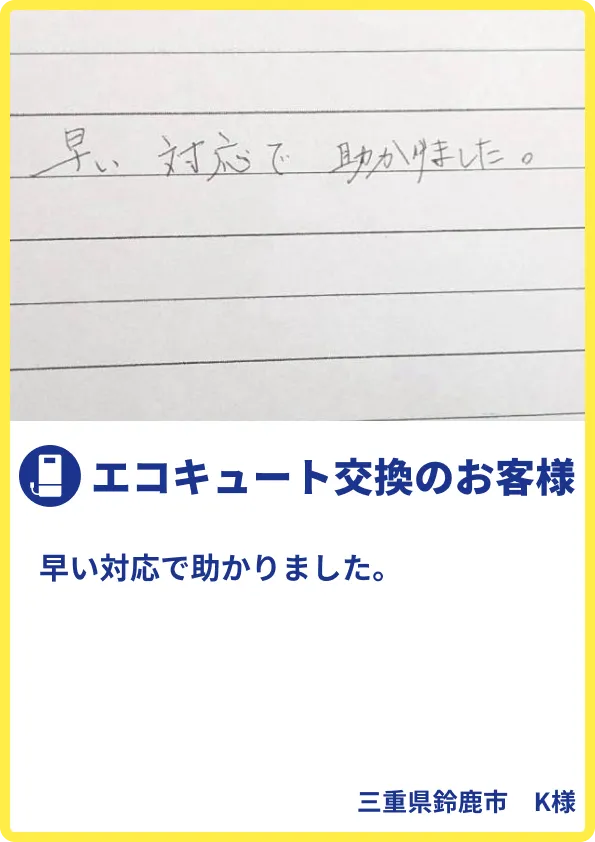 早い 対応で 助かりました。
エコキュート交換のお客様
早い対応で助かりました。
三重県鈴鹿市 K様